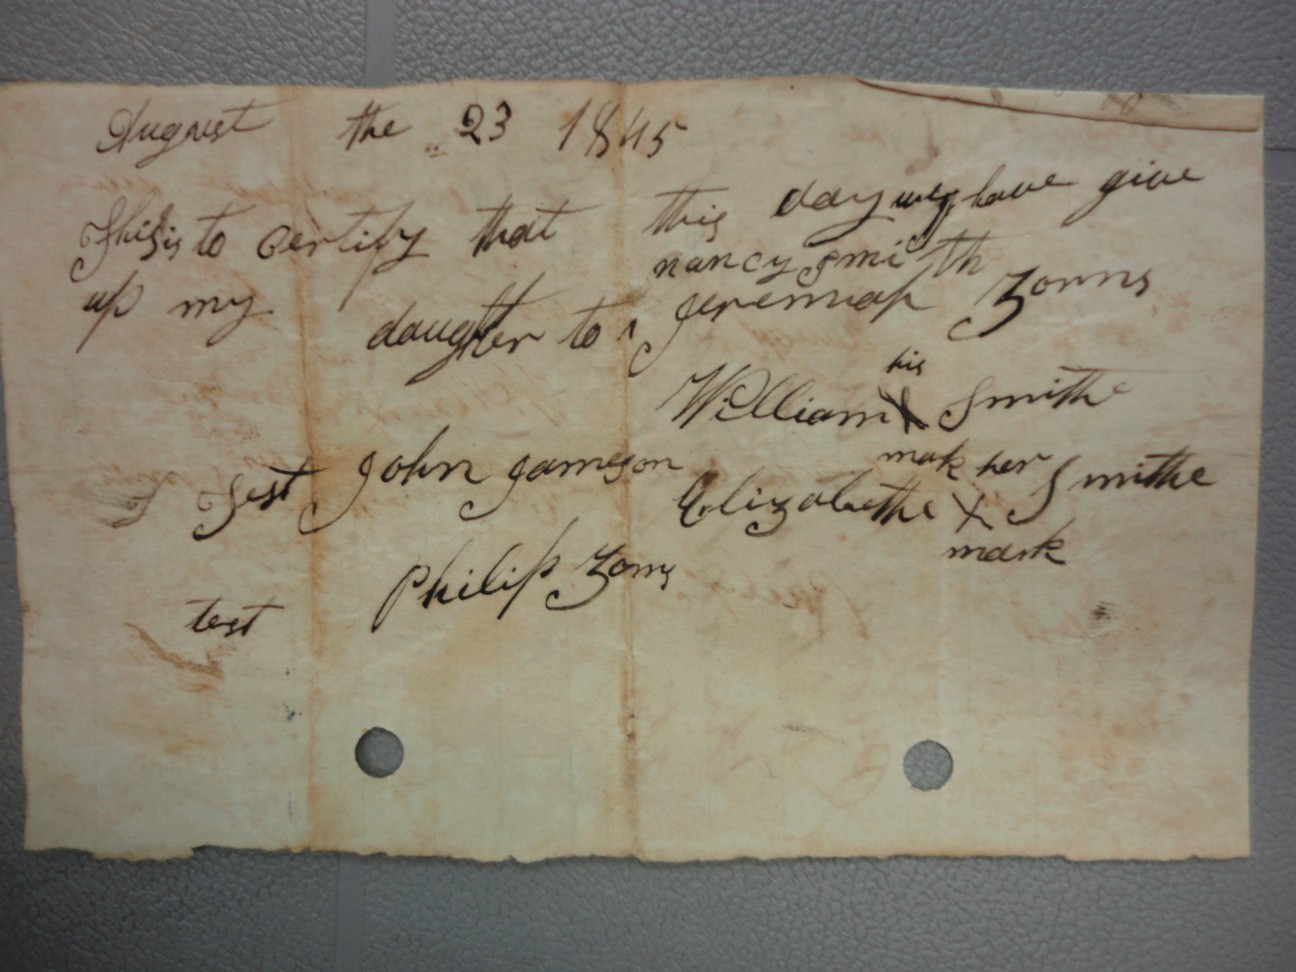 August the 23 1845
This is to certify that this day we have give
up my nancy smith
daughter to Jeremiah Zorns
his
William X Smithe
mak
Test John Jameson
her
Elizabethe X Smithe
mark
test Philip Zorns